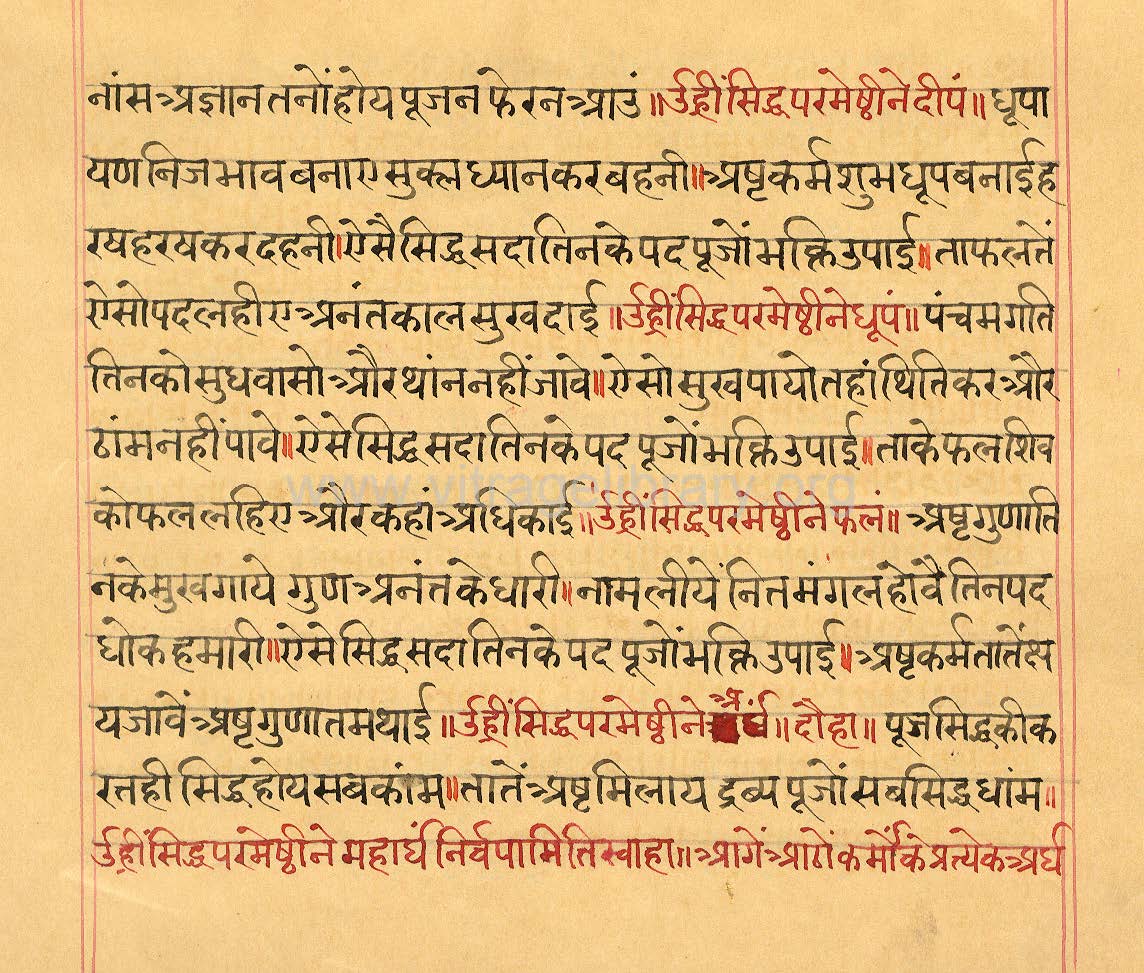 नांसअज्ञानतनोंहोयपूजनफेरनआउं॥उंह्रींसिद्धपरमेष्ठीनेदीपं॥धूपा
यणनिजभावबनाएसुक्लध्यानकरबहनी॥अष्टकर्मशुभधूपबनाईह
रषहरषकरदहनी।ऐसैसिद्धसदातिनकेपदपूजोंभक्तिउपाई॥ताफलतें
ऐसोपदलहीएअनंतकालसुखदाई॥उंह्रींसिद्धपरमेष्ठीनेधूपं॥पंचमगति
तिनकोसुधवासोऔरथांननहींजावे॥ऐसोसुखपायोतहांथितिकरऔर
ठांमनहींपावे॥ऐसेसिद्धसदातिनकेपदपूजोंभक्तिउपाई॥ताकेफलशिव
कोफललहिएऔरकहांअधिकाई॥उंह्रींसिद्धपरमेष्ठीनेफलं॥अष्टगुणाति
नकेमुखगायेगुणअनंतकेधारी॥नामलीयेंनितमंगलहोवैतिनपद
धोकहमारी॥ऐसेसिद्धसदातिनकेपदपूजोंभक्तिउपाई॥अष्टकर्मतातेंक्ष
यजावेंअष्टगुणातमथाई॥उंह्रींसिद्धपरमेष्ठीनेअर्घं॥दौहा॥पूजसिद्धकीक
रतहीसिद्धहोयसबकांम॥तातेंअष्टमिलायद्रव्यपूजोंसबसिद्धधांम॥
उंह्रींसिद्धपरमेष्ठीनेमहार्घंनिर्वपामितिस्वाहा॥आगेंआठोंकर्मोंकेप्रत्येकअर्घ
www.vitragelibrary.org